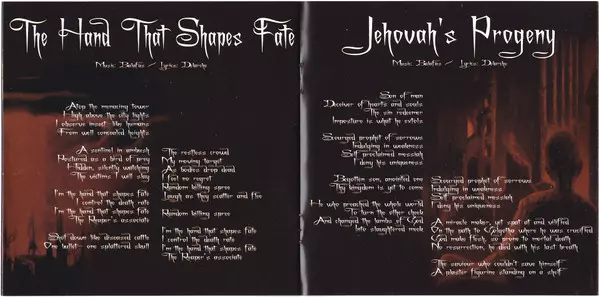 The Hand That Shapes Fate
Music: / Lyrics:
Atop the menacing tower
High above the city lights
I observe insect like humans
From well concealed heights
A sentinel in ambush
Postured as a bird of prey
Hidden, silently watching
The victims I will slay
I'm the hand that shapes fate
I control the death rate
I'm the hand that shapes fate
The Reaper's associate
Shot down like diseased cattle
One bullet - one splattered skull
The restless crowd
My moving target
As bodies drop dead
I feel no regret
Random killing spree
Laugh as they scatter and flee
Random killing spree
I'm the hand that shapes fate
I control the death rate
I'm the hand that shapes fate
The Reaper's associate
Jehovah's Progeny
Music: / Lyrics:
Son of man
Deceiver of hearts and souls
The sin redeemer
Imposture is what he extols
Scourged prophet of sorrows
Indulging in weakness
Self proclaimed messiah
I deny his uniqueness
Begotten son, anointed one
Thy kingdom is yet to come
He who preached the whole world
To turn the other cheek
And changed the lambs of God
Into slaughtered meek
Scourged prophet of sorrows
Indulging in weakness
Self proclaimed messiah
I deny his uniqueness
A miracle maker, yet spat at and vilified
On the path to Golgotha where he was crucified
God made flesh, so prone to mortal death
No resurrection, he died with his last breath
The saviour who couldn't save himself
A plaster figurine standing on a shelf